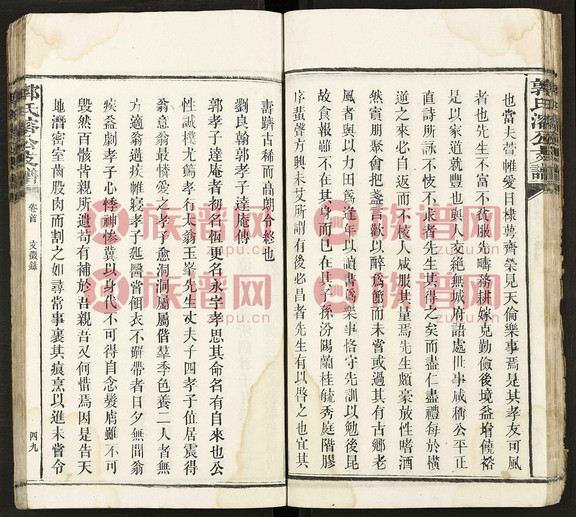 也當夫常帷愛日棣萼齊榮見天倫樂事焉是其孝友可風
者也先生不富不在服先疇務耕嫁克勤儉後境益增饒裕
是以家道就豐也與人交絕無城府語處世事咸稱公平正
直詩所詠不忮不求者先生其得之矣而盡仁盡禮每於橫
逆之來必自返而不校人咸服其量焉先生頗豪放性嗜酒
月夕花朋客來即把盞言歡以醉爲節而未嘗或過其有古鄉老
風者與以力田爲逢年以讀書爲樂事恪守先訓以勉後昆
故食報雖不在其身而已在其子孫汾陽蘭桂毓秀庭階膠
序蜚聲方興未艾所謂有後必昌者先生有以啓之也宜其
壽躋古稀而高朗令終也
劉良翰郭孝子達庵傳
郭孝子達庵者初名恆更名永字孝思其命名有自來也公
性誠樸尤篤孝行太翁玉峯先生丈夫子四孝子位居震得
翁意翁最憐愛之孝子愈洞洞屬屬偕羣季色養二人者無
方適翁遘疾帷寢孝子延醫嘗餌衣不解帶者日夕無間翁
疾益劇孝子心悸神慘冀以身代不可得自念髮膚雖不可
毀然百骸皆親所遺苟有補於吾親吾又何惜焉因是告天
地潛密室齒股肉而割之如尋常事裹其痕烹以進未嘗令
郭氏濬公支譜
卷首
支徵錄
四九
郭氏濬公支譜
族谱网
zupu.cn
族谱网
zupu.cn
族谱网
zupu.cn
族谱网
zupu.cn